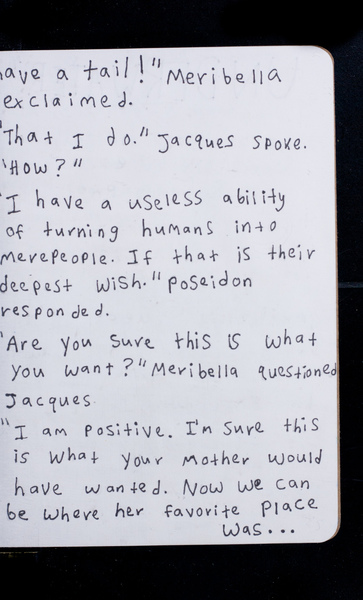 ave a tail!" Meribella
exclaimed.
"That I do." Jacques spoke.
"How?"
"I have a useless ability
of turning humans into
merepeople. If that is their
deepest wish." Poseidon
responded.
"Are you sure this is what
you want?" Meribella questioned
Jacques
"I am positive. I'm sure this
is what your mother would
have wanted. Now we can
be where her favorite place
was...